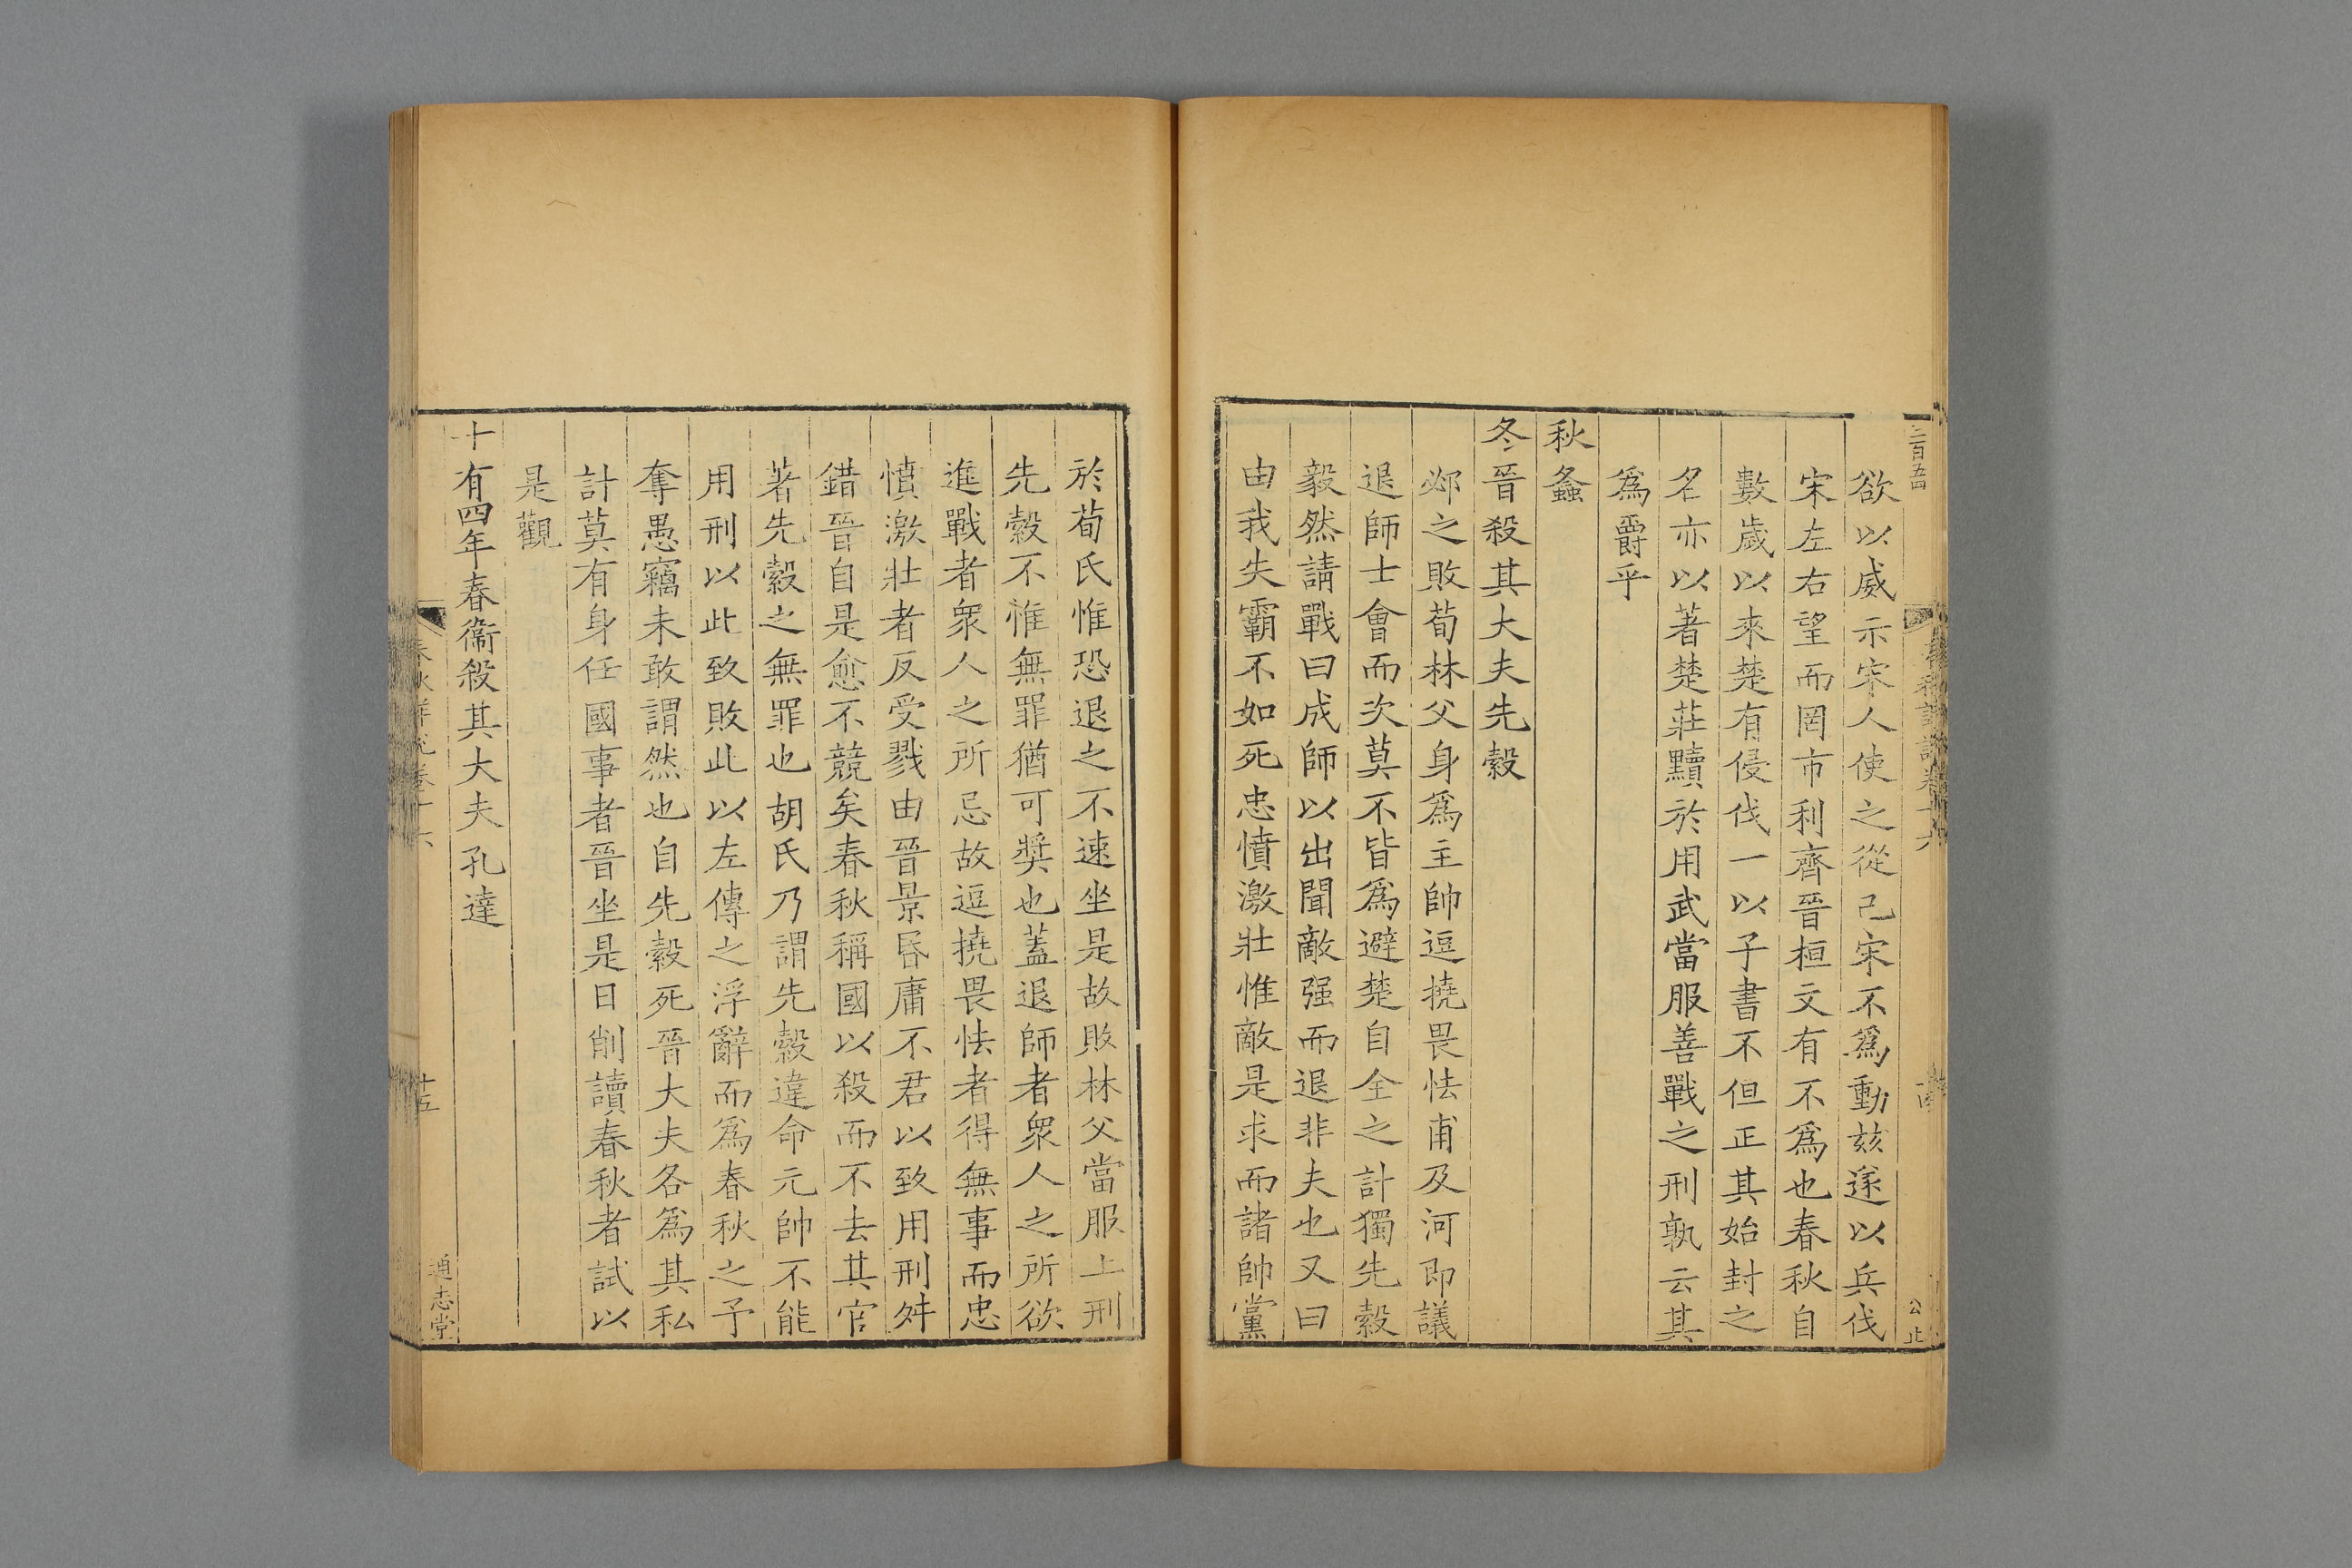 欲以威示宋人使之從己宋不爲動玆遂以兵伐
宋左右望而罔市利齊晉桓文有不爲也春秋自
數歲以來楚有侵伐一以子書不但正其始封之
名亦以著楚莊黷於用武當服善戰之刑孰云其
爲爵乎
秋螽
冬晉殺其大夫先縠
邲之敗荀林父身爲主帥逗撓畏怯甫及河卽議
退師士會而次莫不皆爲避楚自全之計獨先縠
毅然請戰曰成師以出聞敵强而退非夫也又曰
由我失霸不如死忠憤激壯惟敵是求而諸帥黨
於荀氏惟恐退之不速坐是故敗林父當服上刑
先縠不惟無罪猶可奬也蓋退師者衆人之所欲
進戰者衆人之所忌故逗撓畏怯者得無事而忠
憤激壯者反受戮由晉景昬庸不君以致用刑舛
錯晉自是愈不競矣春秋稱國以殺而不去其官
著先縠之無罪也胡氏乃謂先縠違命元帥不能
用刑以此致敗此以左傳之浮辭而爲春秋之予
奪愚竊未敢謂然也自先縠死晉大夫各爲其私
計莫有身任國事者晉坐是日削讀春秋者試以
是觀
十有四年春衞殺其大夫孔達
春秋詳說卷十六
十五
通志堂